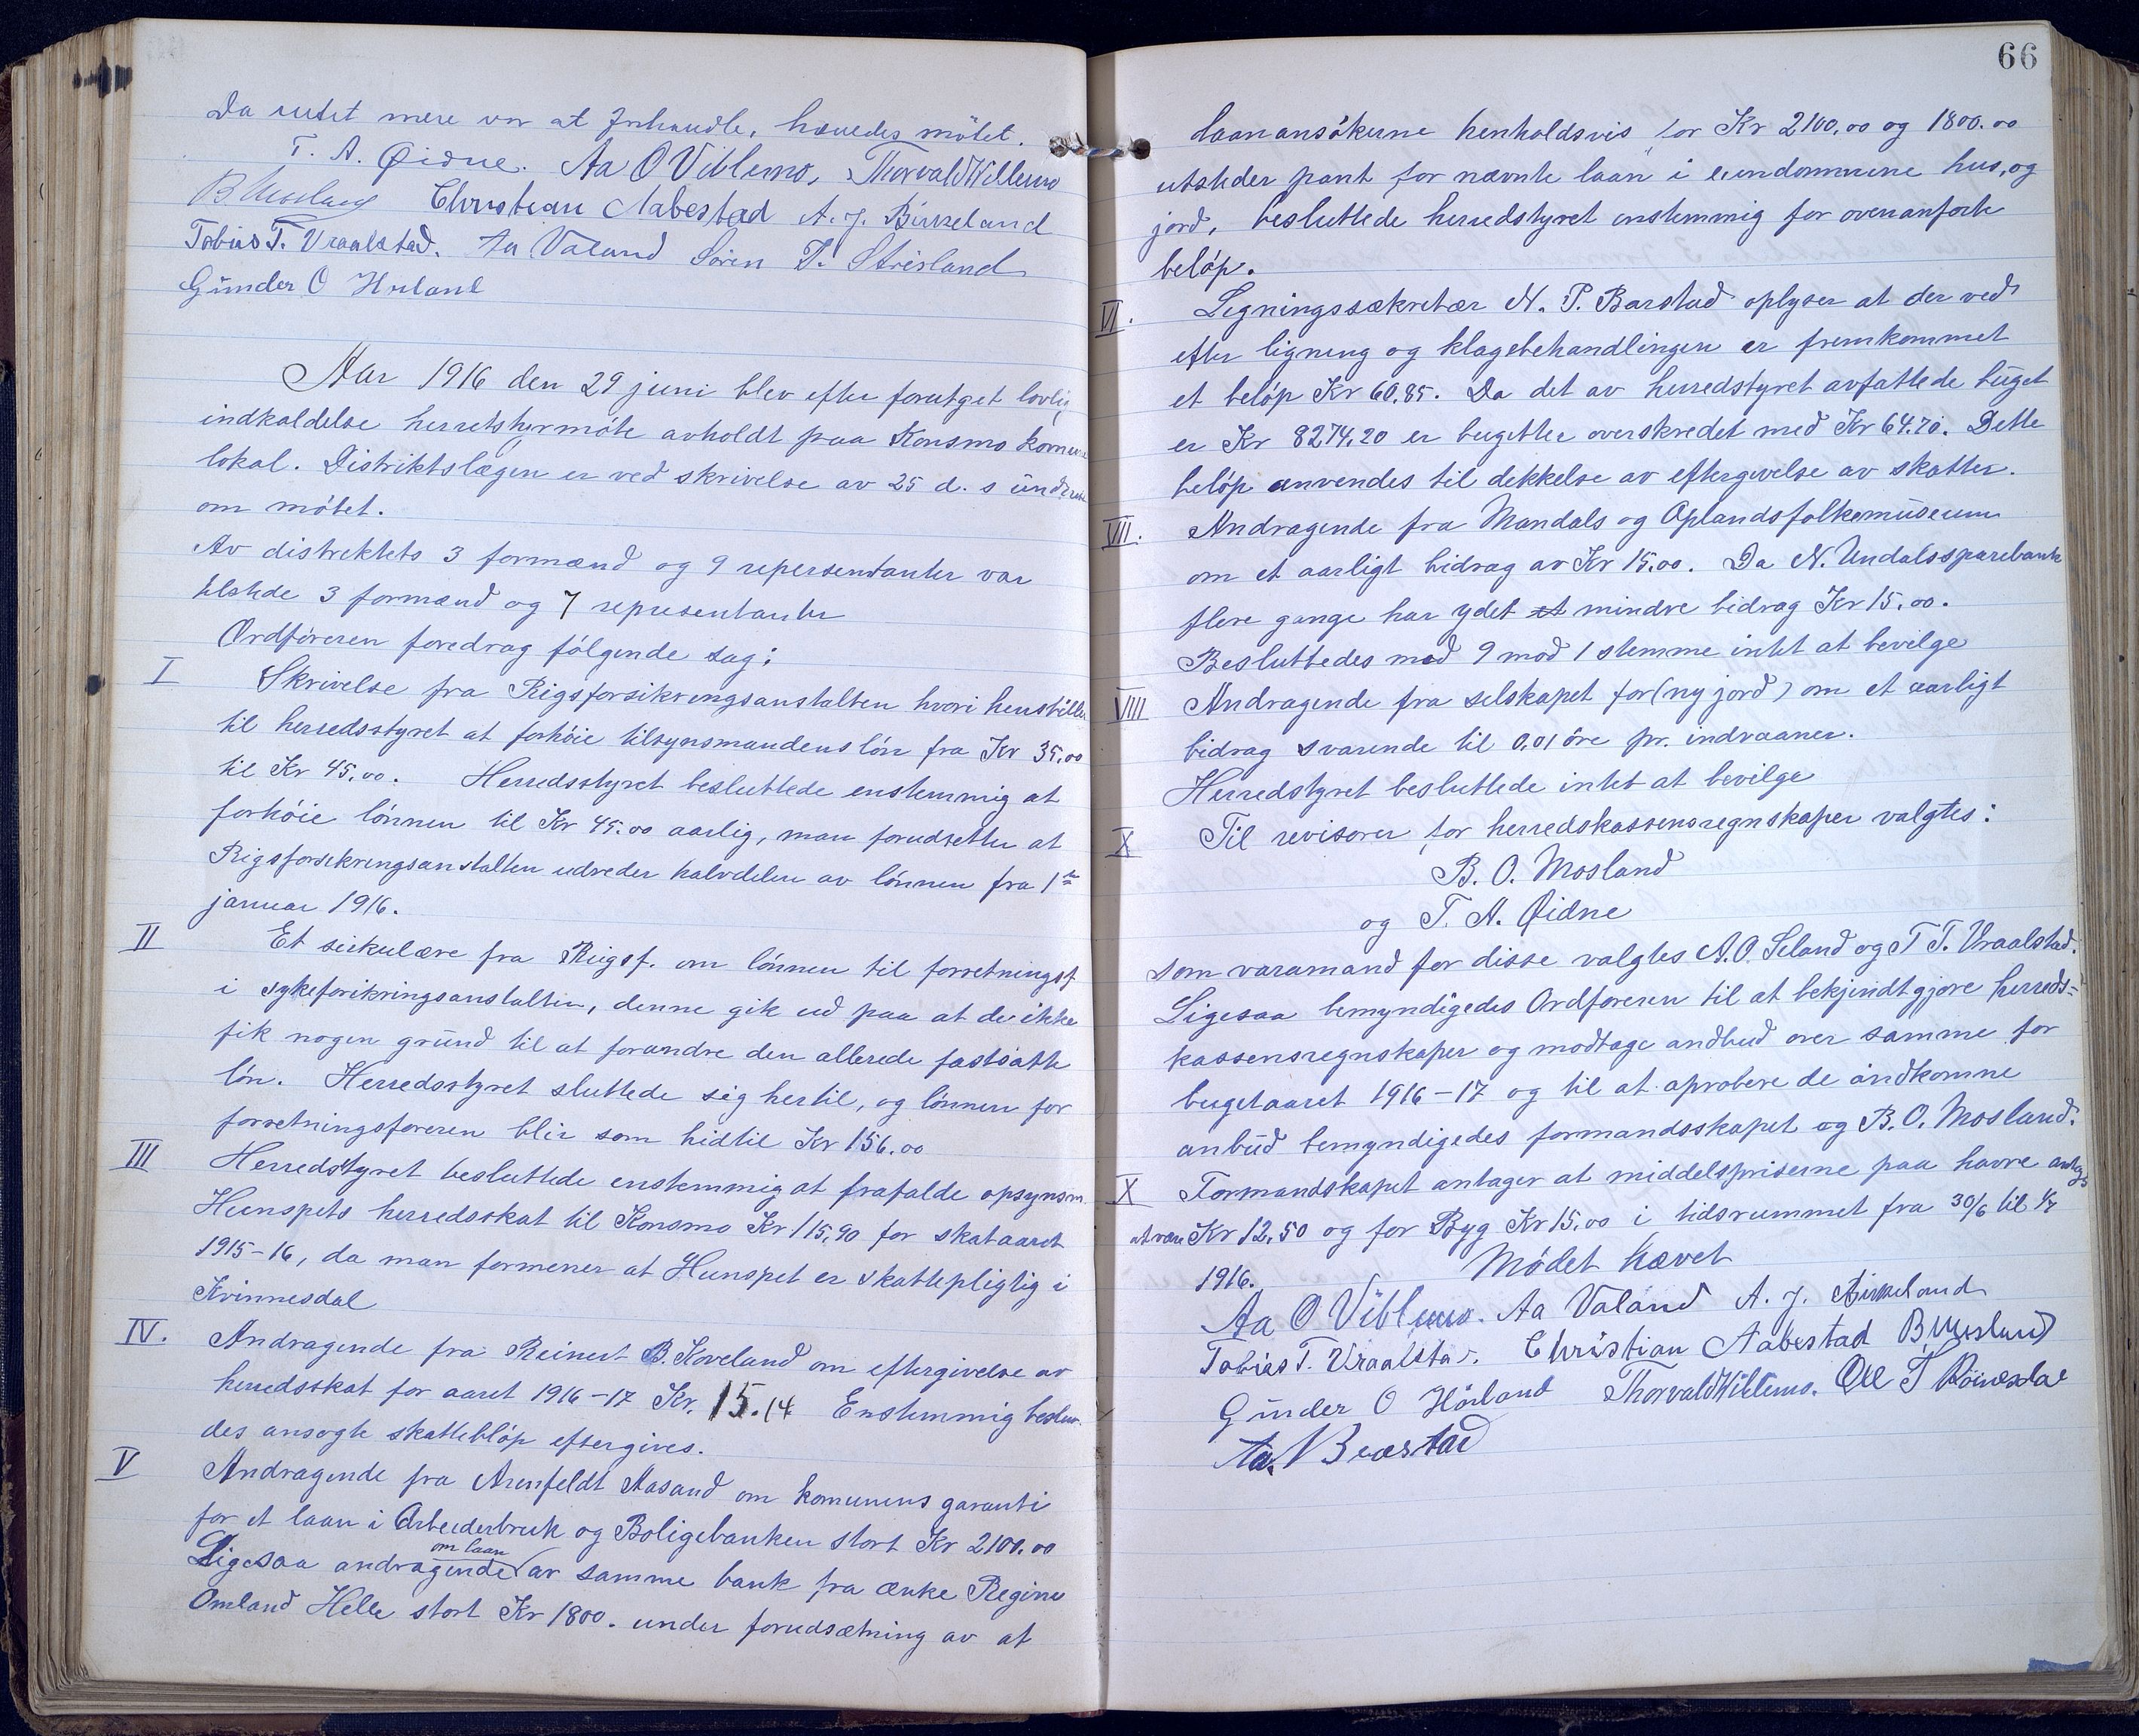 Da intet mere var at forhandle, hævedes mötet.
T. A. Øidne. Aa O Viblemo, Thorvald Viblemo
B Mosland Christian Nabestad A. J. Birkeland
Tobias T. Vraalstad. Aa Valand Sören T.
Gunder O Hörland
Aar 1916 den 29 juni blev efter forutget lovlig
indkaldelse herredstyrmöte avholdt paa Konsmo komune
lokal. Distriktslægen er ved skrivelse av 25 d. s underrettet
om mötet.
Av distriktets 3 formænd og 9 repersentanter var
tilstede 3 formænd og 7 representanter
Ordföreren foredrog fölgende sag:
I
Skrivelse fra Rigsforsikringsanstalten hvori henstilles
til herredsstyret at forhöie tilsynsmandens lön fra Kr 35,00
til Kr 45,00. Herredsstyret besluttede enstemmig at
forhöie lönnen til Kr 45.00 aarlig, man forudsetter at
Rigsforsikringsanstalten udreder halvdelen av lönnen fra 1ste
januar 1916.
II
Et sirkulære fra Rigsf. om lönnen til forretningsf.
i sykeforikringsanstalten, denne gik ud paa at de ikke
fik nogen grund til at forandre den allerede fastsatte
lön. Herredsstyret sluttede sig hertil, og lönnen for
forretningsföreren blir som hidtil Kr 156.00
III
Herredstyret besluttede enstemmig at frafalde opsynsm.
Hunspets herredsskat til Konsmo Kr 115,90 for skataaret
1915-16, da man formener at Hunspet er skattepligtig i
Kvinnesdal
IV.
Andragende fra Reinert B. Koveland om eftergivelse av
herredsskat for aaret 1916-17 Kr. 15.14 Enstemmig beslut-
des ansøgte skattebløp eftergives.
V
Andragende fra Arenfeldt Aasand om komunens garanti
for et laan i Arbeiderbruk og Boligebanken stort Kr 2100.00
om laan
Ligesaa andragende av samme bank fra enke Regine
Omland Helle stort Kr 1800. under forudsætning av at
66
laanansökerne henholdsvis for Kr 2100,00 og 1800.00
utsteder pant for nævnte laan i eiendommene hus, og
jord, besluttede herredstyret enstemmig for ovenanförte
belöp.
VI.
Ligningssekretær N. P. Barstad oplyser at der ved
efter ligning og klagebehandlingen er fremkommet
et belöp Kr 60,85. Da det av herredstyret avfattede buget
er Kr 8274,20 er bugettet overskredet med Kr 64.70. Dette
belöp anvendes til dekkelse av eftergivelse av skatter.
VII.
Andragende fra Mandals og Oplandsfolkemuseum
om et aarligt bidrag av Kr 15,00. Da N. Undalssparebank
flere gange har ydet et mindre bidrag Kr 15,00.
Besluttedes med 9 mod 1 stemme intet at bevilge
VIII
Andragende fra selskapet for (ny jord) om et aarligt
bidrag svarende til 0,01 öre pr. indvaaner.
Herredstyret besluttede intet at bevilge
X
Til revisorer for herredskassensregnskaper valgtes:
B. O. Mosland
og T. A. Øidne
som varamænd for disse valgtes A. O. Seland og T T. Vraalstad.
Ligesaa bemyndigedes Ordføreren til at bekjendtgjøre herreds-
kassensregnskaper og modtage andbud over samme for
bugetaaret 1916-17 og til at aprobere de indkomne
anbud bemyndigedes formandsskapet og B. O. Mosland.
X
Formandskapet antager at middelspriserne paa havre antages
at være Kr 12,50 og for Byg Kr 15,00 i tidsrummet fra 30/6 til
1916.
Mödet hævet
Aa O Viblemo. Aa Valand A. J. Birkeland
Tobias T. Vraalstad. Christian Nabestad B Mosland
Gunder O Hörland Thorvald Viblemo. Ole T
Aa.